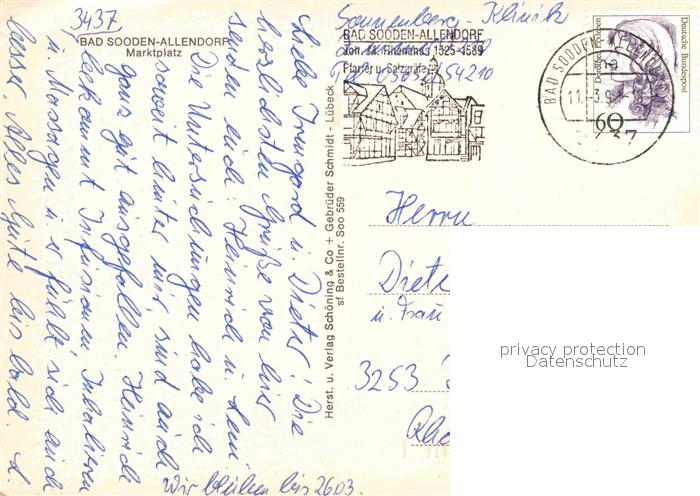 3437
BAD SOODEN-ALLENDORF
Marktplatz
Sonnenberg-Klinik
BAD SOODEN-ALLENDORF
Joh. Rhenanus 1525-1589
Pfarrer u. Salzgräfe
54210
BAD SOODEN-ALLENDORF
11.-3.9
3437
Deutsche Bundespost
60
Liebe Irmgard u. Dieter! Die
herzlichsten Grüße von hier
senden euch Heinrich u. Leni
Die Untersuchungen habe ich
soweit hinter mir sind auch
ganz gut ausgefallen. Heinrich
bekommt Infusionen Inhalieren
u. Massagen u. er fühlt sich auch
besser. Alles Gute bis bald. L.
Wir bleiben bis 26.03.
Herst. u. Verlag Schöning & Co + Gebrüder Schmidt - Lübeck
sf Bestellnr. Soo 559
Herrn
Diete
u. Frau
3253
privacy protection
Datenschutz